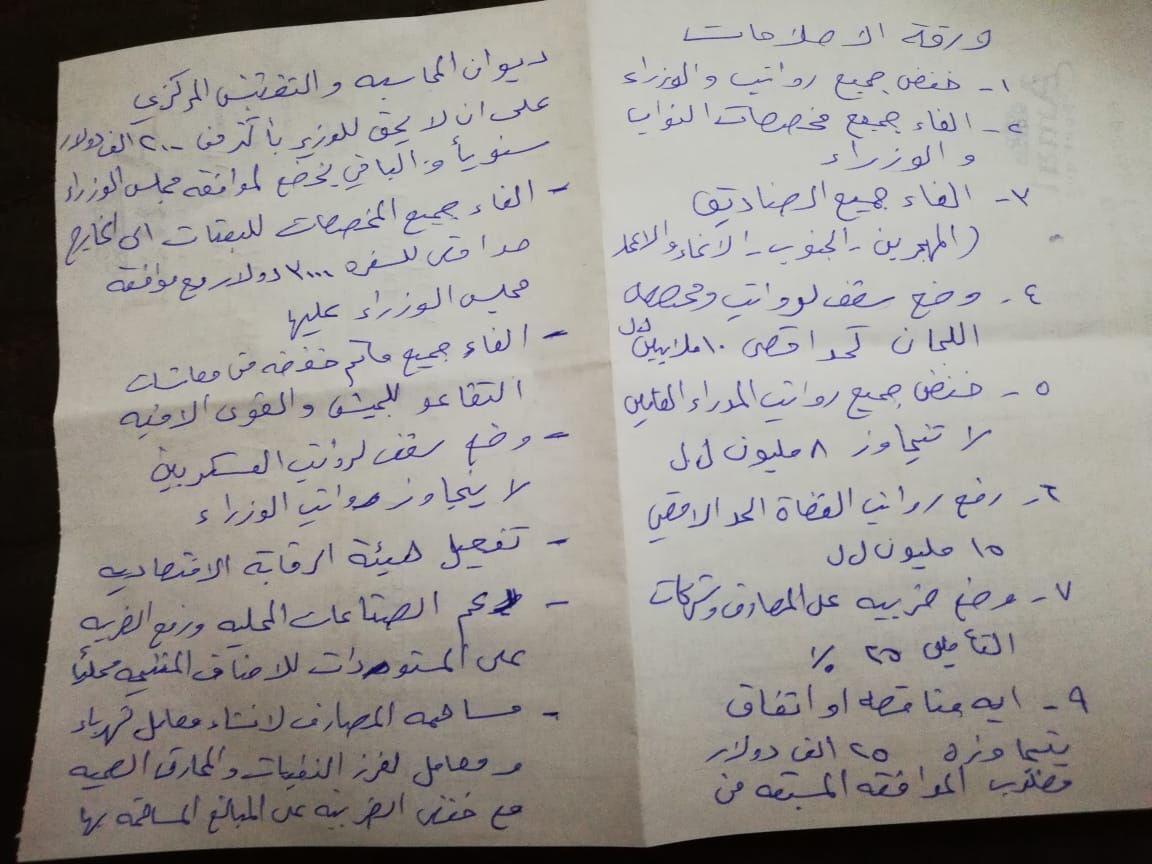 ورقة الاصلاحات
١- خفض جميع رواتب والوزراء
٢- الغاء جميع مخصصات النواب
والوزراء
٣- الغاء جميع الصناديق
(المهجرين - الجنوب - الانماء والاعمار
٤- وضع سقف لرواتب ومخصصه
اللجان كحد اقصى ١٠ ملايين ل ل
٥- خفض جميع رواتب المدراء العامين
لا تتجاوز ٨ مليون ل ل
٦- رفع رواتب القضاة الحد الاقصى
١٥ مليون ل ل
٧- وضع ضريبه على المصارف وشركات
التأمين ٢٥ %
٩- ايه مناقصه او اتفاق
يتجاوزه ٢٥ الف دولار
مطلوب الموافقه المسبقه من
ديوان المحاسبه والتفتيش المركزي
على ان لا يحق للوزير باكثر من ٢٠٠ الف دولار
سنوياً والباقي يخضع لموافقه مجلس الوزراء
- الغاء جميع المخصصات للبعثات الى الخارج
حد اقصى للسفره ٣٠٠٠ دولار مع موافقة
مجلس الوزراء عليها
- الغاء جميع ماتم خفضه من معاشات
التقاعد للجيش والقوى الامنيه
- وضع سقف لرواتب العسكريين
لا يتجاوز رواتب الوزراء
- تفعيل هيئة الرقابة الاقتصاديه
- دعم الصناعات المحليه ورفع الضريبه
على المستوردات للاصناف المنتجه محلياً
- مساهمه المصارف لانشاء معامل كهرباء
ومعامل لفرز النفايات والمحارق الصحيه
مع خفض الضريبه على المبالغ المساهمه بها